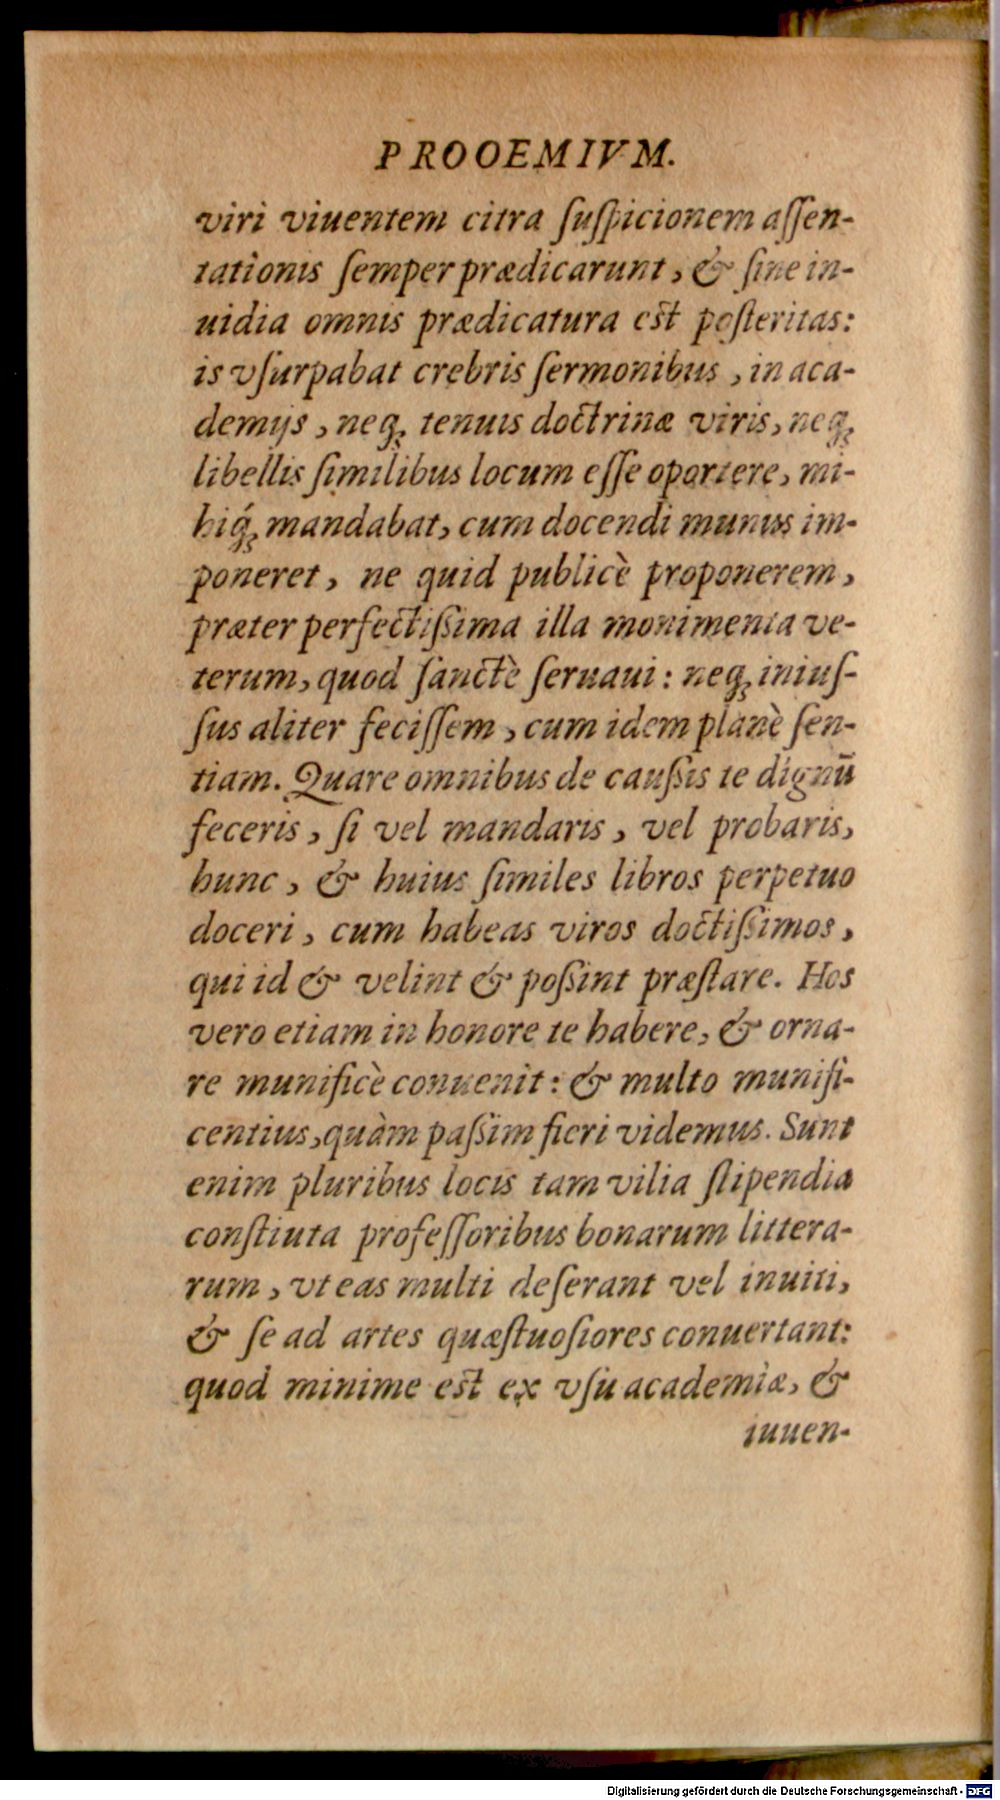 PROOEMIVM.
viri viuentem citra ſuſpicionem aſſen-
tationis ſemper prædicarunt, & ſine in-
uidia omnis prædicatura est poſteritas:
is vſurpabat crebris ſermonibus, in aca-
demijs, neq; tenuis doctrinæ viris, neq;
libellis ſimilibus locum eſſe oportere, mi-
hiq́; mandabat, cum docendi munus im-
poneret, ne quid publicè proponerem,
præter perfectiſsima illa monimenta ve-
terum, quod ſanctè ſeruaui: neq; iniuſ-
ſus aliter feciſſem, cum idem planè ſen-
tiam. Quare omnibus de cauſsis te dignū
feceris, ſi vel mandaris, vel probaris,
hunc, & huius ſimiles libros perpetuo
doceri, cum habeas viros doctiſsimos,
qui id & velint & poſsint præſtare. Hos
vero etiam in honore te habere, & orna-
re munificè conuenit: & multo munifi-
centius, quàm paſsim fieri videmus. Sunt
enim pluribus locis tam vilia ſtipendia
conſtiuta profeſſoribus bonarum littera-
rum, vt eas multi deſerant vel inuiti,
& ſe ad artes quæſtuoſiores conuertant:
quod minime est ex vſu academiæ, &
iuuen-
Digitalisierung gefördert durch die Deutsche Forschungsgemeinschaft - DFG